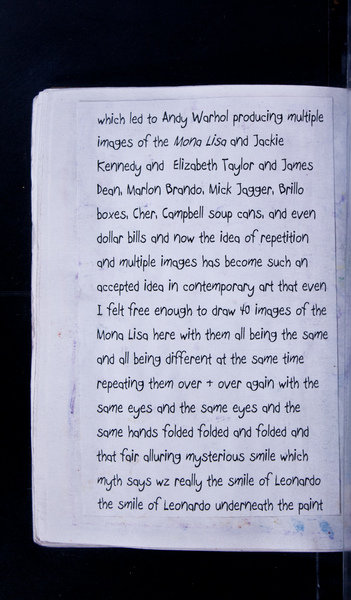 which led to Andy Warhol producing multiple
images of the Mona Lisa and Jackie
Kennedy and Elizabeth Taylor and James
Dean, Marlon Brando, Mick Jagger, Brillo
boxes, Cher, Campbell soup cans, and even
dollar bills and now the idea of repetition
and multiple images has become such an
accepted idea in contemporary art that even
I felt free enough to draw 40 images of the
Mona Lisa here with them all being the same
and all being different at the same time
repeating them over + over again with the
same eyes and the same eyes and the
same hands folded folded and folded and
that fair alluring mysterious smile which
myth says wz really the smile of Leonardo
the smile of Leonardo underneath the paint